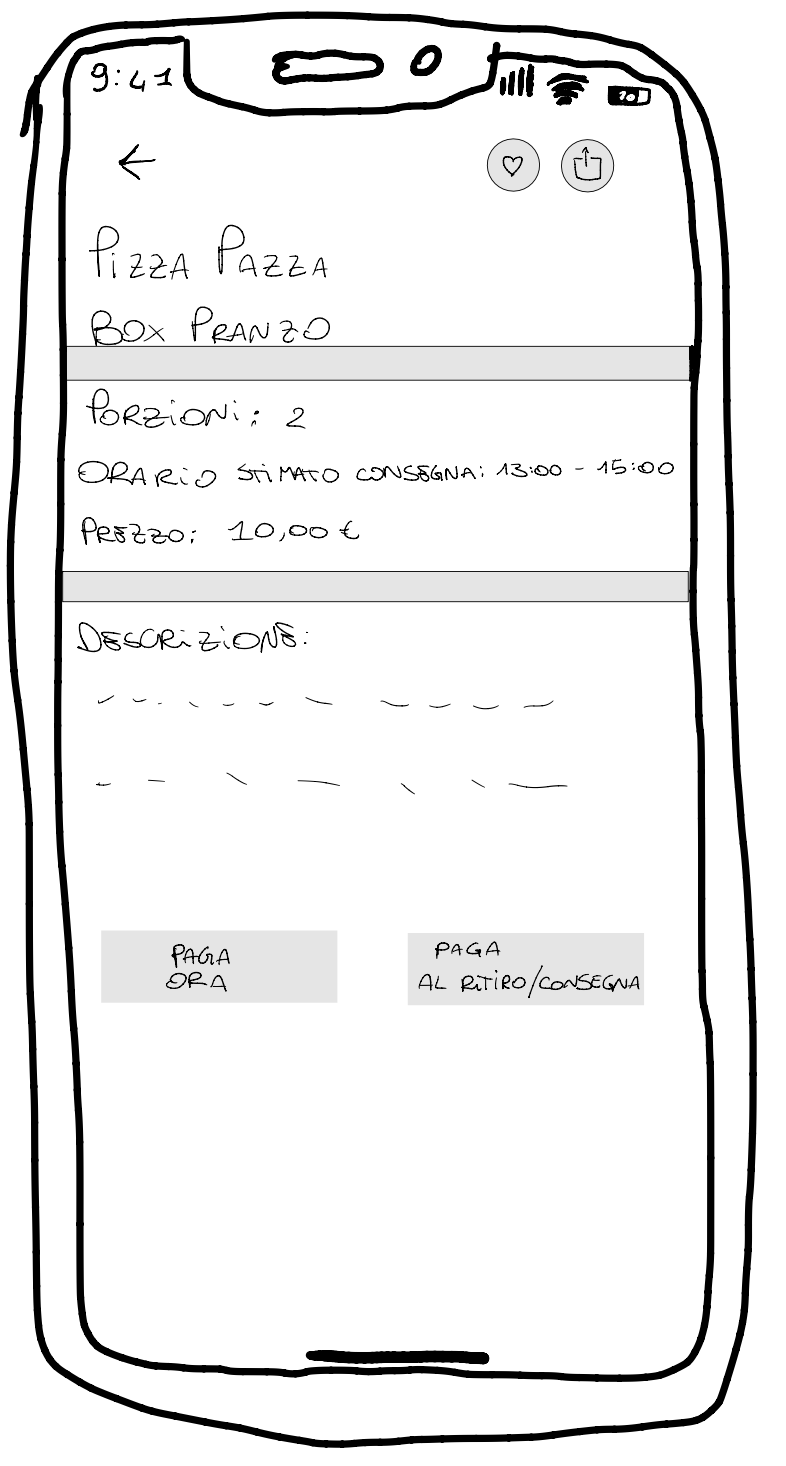 9:41
PIZZA PAZZA
BOX PRANZO
PORZIONI: 2
ORARIO STIMATO CONSEGNA: 13:00 - 15:00
PREZZO: 10,00 €
DESCRIZIONE:
PAGA
ORA
PAGA
AL RITIRO/CONSEGNA